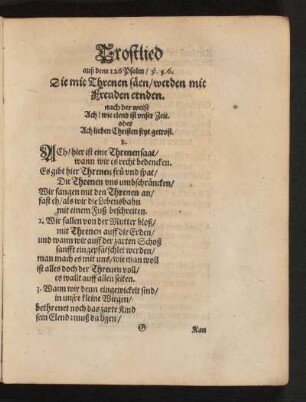 Trostlied
auß dem 126 Psalm / ꝟ. 5. 6.
Die mit Threnen säen / werden mit
Freuden ernden.
nach der weise
Ach! wie elend ist unser Zeit.
oder
Ach lieben Christen seyt getrost.
1.
ACh / hier ist eine Threnen saat /
wann wir es recht bedencken.
Es gibt hier Threnen frü und spat /
Die Threnen uns umbschräncken /
Wir fangen mit den Threnen an /
fast eh / als wir die Lebensbahn
mit einem Fuß beschreiten.
2. Wir fallen von der Mutter bloß /
mit Threnen auff die Erden /
und wann wir auff der zarten Schoß
sanfft eingepfätschlet werden /
man mach es mit uns / wie man woll
ist alles doch der Threnen voll /
es wallt auff allen seiten.
3. Wann wir denn eingewickelt sind /
in unsre kleine Wiegen /
bethrenet noch das zarte Kind
sein Elend: muß da ligen /
G
Kan